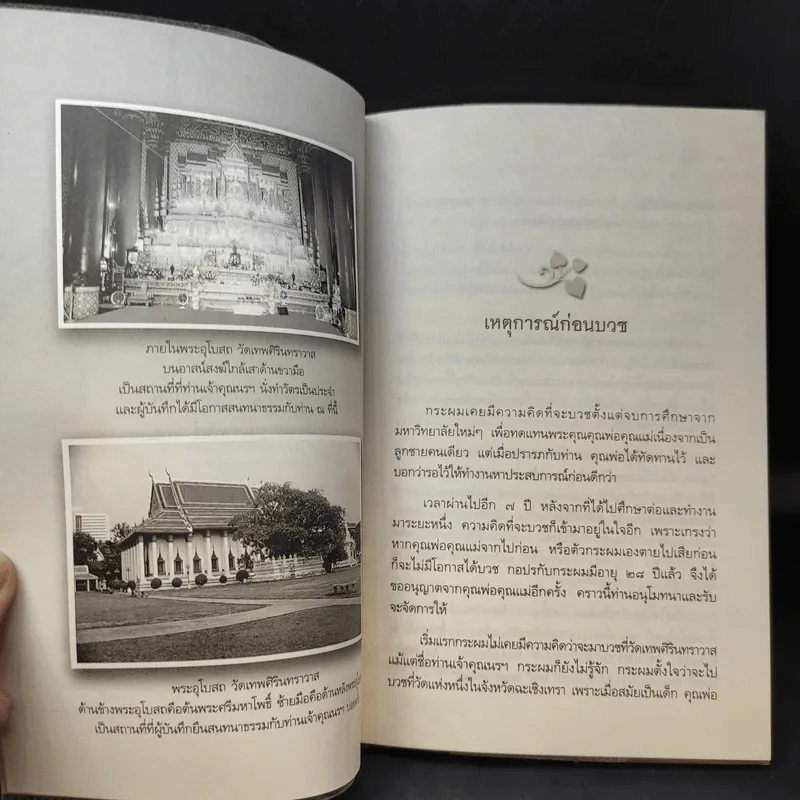 ภายในพระอุโบสถ วัดเทพศิรินทราวาส
บนอาสน์สงฆ์ใกล้เสาด้านขวามือ
เป็นสถานที่ที่ท่านเจ้าคุณนรฯ นั่งทำวัตรเป็นประจำ
และผู้บันทึกได้มีโอกาสสนทนาธรรมกับท่าน ณ ที่นี้
พระอุโบสถ วัดเทพศิรินทราวาส
ด้านข้างพระอุโบสถคือต้นพระศรีมหาโพธิ์ ซ้ายมือคือด้านหลัง
เป็นสถานที่ที่ผู้บันทึกยืนสนทนาธรรมกับท่านเจ้าคุณนรฯ
เหตุการณ์ก่อนบวช
กระผมเคยมีความคิดที่จะบวชตั้งแต่จบการศึกษาจาก
มหาวิทยาลัยใหม่ๆ เพื่อทดแทนพระคุณคุณพ่อคุณแม่เนื่องจากเป็น
ลูกชายคนเดียว แต่เมื่อปรารภกับท่าน คุณพ่อได้ทัดทานไว้ และ
บอกว่ารอไว้ให้ทำงานหาประสบการณ์ก่อนดีกว่า
เวลาผ่านไปอีก ๗ ปี หลังจากที่ได้ไปศึกษาต่อและทำงาน
มาระยะหนึ่ง ความคิดที่จะบวชก็เข้ามาอยู่ในใจอีก เพราะเกรงว่า
หากคุณพ่อคุณแม่จากไปก่อน หรือตัวกระผมเองตายไปเสียก่อน
ก็จะไม่มีโอกาสได้บวช กอปรกับกระผมมีอายุ ๒๘ ปีแล้ว จึงได้
ขออนุญาตจากคุณพ่อคุณแม่อีกครั้ง คราวนี้ท่านอนุโมทนาและรับ
จะจัดการให้
เริ่มแรกกระผมไม่เคยมีความคิดว่าจะมาบวชที่วัดเทพศิรินทราวาส
แม้แต่ชื่อท่านเจ้าคุณนรฯ กระผมก็ยังไม่รู้จัก กระผมตั้งใจว่าจะไป
บวชที่วัดแห่งหนึ่งในจังหวัดฉะเชิงเทรา เพราะเมื่อสมัยเป็นเด็ก คุณพ่อ